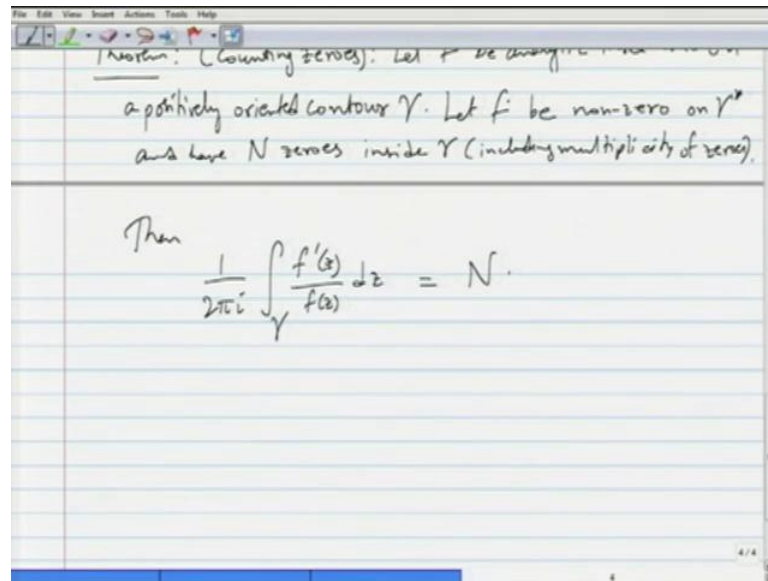 File Edit View Insert Actions Tools Help
Theorem: (Counting zeroes). Let f be analytic
a positively oriented contour γ. Let f be non-zero on γ*
and have N zeroes inside γ (including multiplicity of zeroes).
Then
1/2πi ∫_γ f'(z)/f(z) dz = N.
4/4